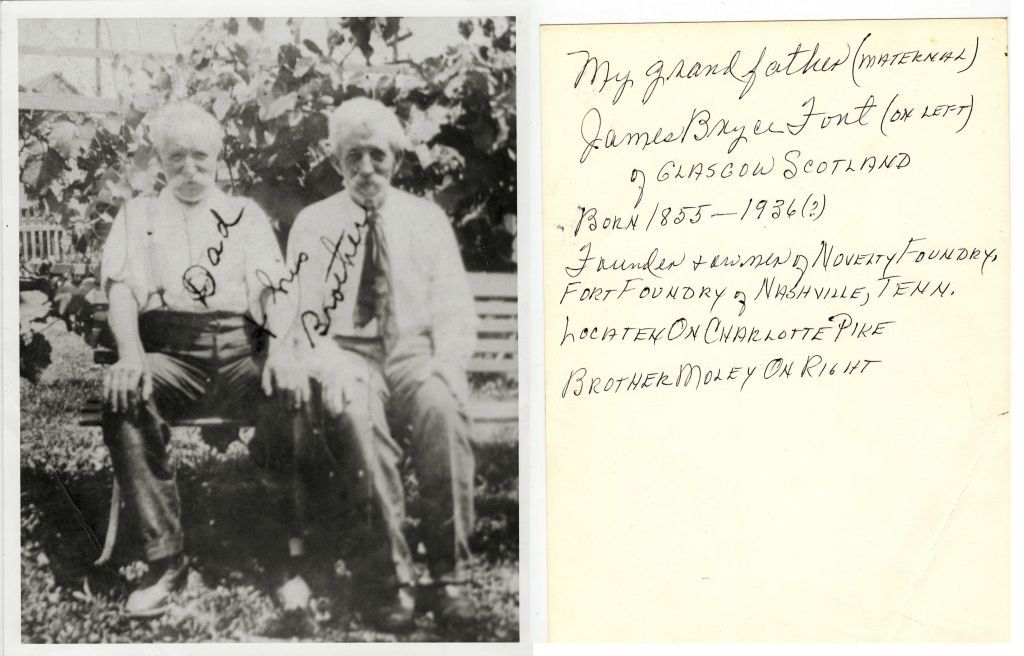 Dad
& his
Brother
My grandfather (MATERNAL)
James Bryce Font (ON LEFT)
of GLASGOW SCOTLAND
BORN 1855 — 1936(?)
Founder & owner of NOVELTY FOUNDRY,
FORT FOUNDRY of NASHVILLE, TENN.
LOCATEN ON CHARLOTTE PIKE
BROTHER MOLEY ON RIGHT